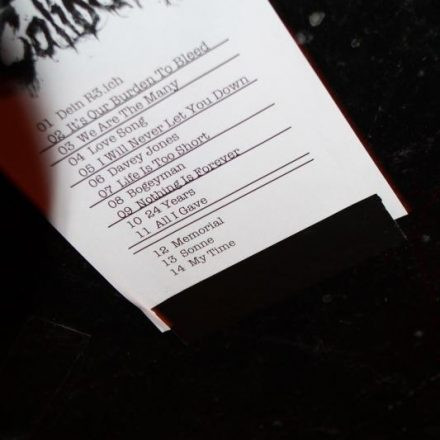 Calib
01 Dein R3.ich
02 It's Our Burden To Bleed
03 We Are The Many
04 Love Song
05 I Will Never Let You Down
06 Davey Jones
07 Life Is Too Short
08 Bogeyman
09 Nothing Is Forever
10 24 Years
11 All I Gave
12 Memorial
13 Sonne
14 My Time